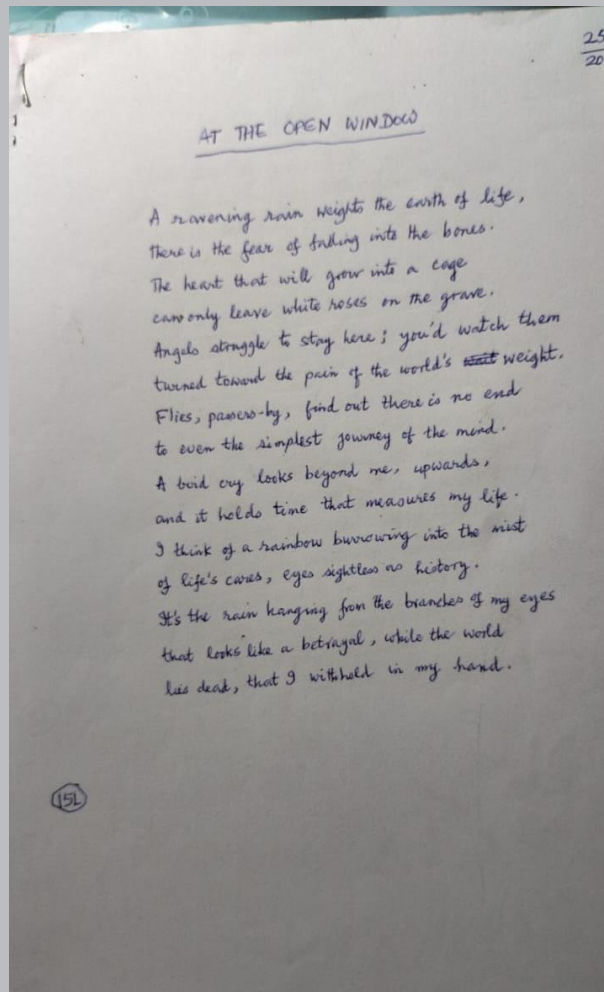 25
20
AT THE OPEN WINDOW
A ravening rain weights the earth of life,
There is the fear of falling into the bones.
The heart that will grow into a cage
can only leave white roses on the grave.
Angels struggle to stay here; you'd watch them
turned toward the pain of the world's weight.
Flies, passers-by, find out there is no end
to even the simplest journey of the mind.
A bird cry looks beyond me, upwards,
and it holds time that measures my life.
I think of a rainbow burrowing into the mist
of life's cares, eyes sightless as history.
It's the rain hanging from the branches of my eyes
that looks like a betrayal, while the world
lies dead, that I withhold in my hand.
15L